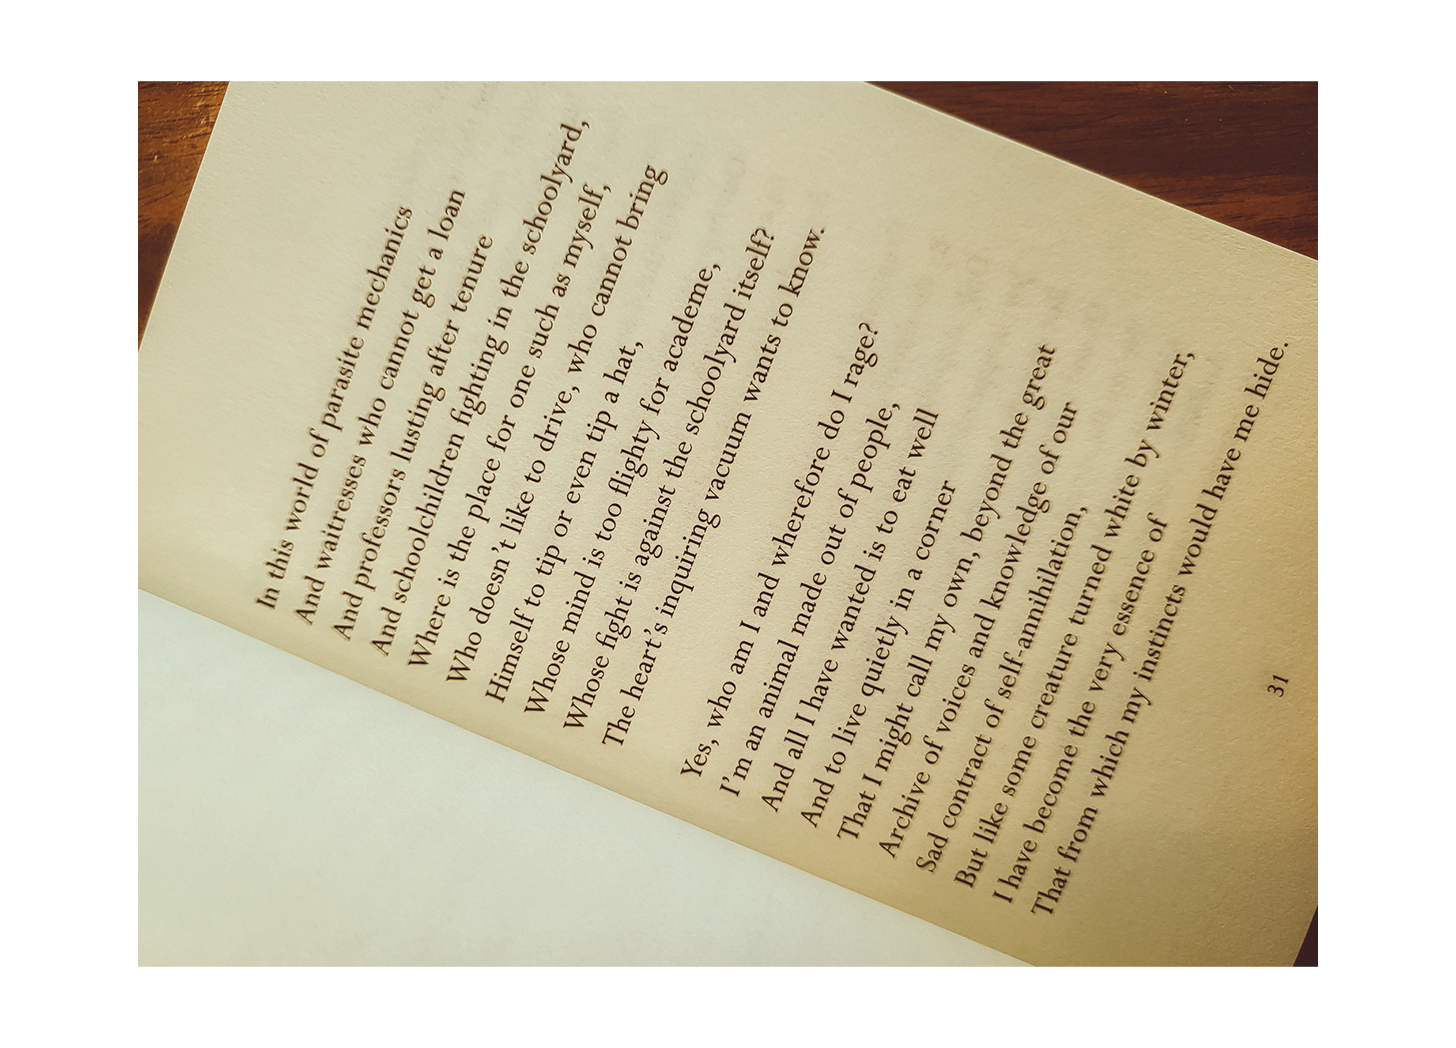 In this world of parasite mechanics
And waitresses who cannot get a loan
And professors lusting after tenure
And schoolchildren fighting in the schoolyard,
Where is the place for one such as myself,
Who doesn't like to drive, who cannot bring
Himself to tip or even tip a hat,
Whose mind is too flighty for academe,
Whose fight is against the schoolyard itself?
The heart's inquiring vacuum wants to know.
Yes, who am I and wherefore do I rage?
I'm an animal made out of people,
And all I have wanted is to eat well
And to live quietly in a corner
That I might call my own, beyond the great
Archive of voices and knowledge of our
Sad contract of self-annihilation,
But like some creature turned white by winter,
I have become the very essence of
That from which my instincts would have me hide.
31